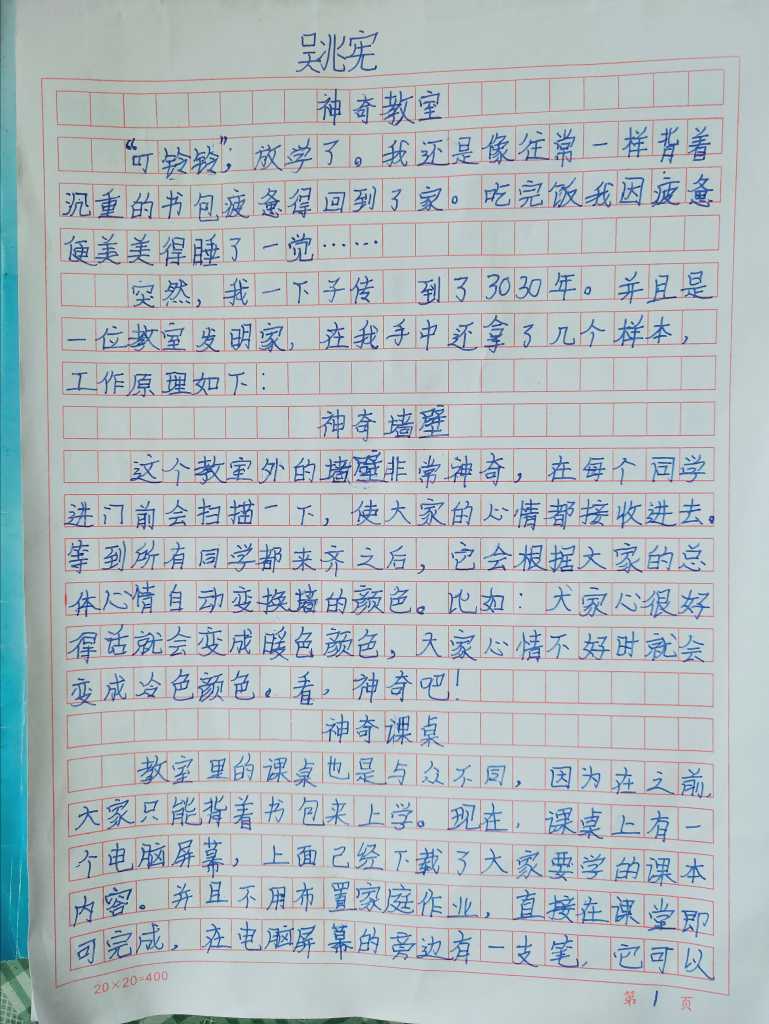 吴兆宪
神奇教室
“叮铃铃”,放学了。我还是像往常一样背着
沉重的书包疲惫得回到了家。吃完饭我因疲惫
便美美得睡了一觉……
突然,我一下子传 到了3030年。并且是
一位教室发明家,在我手中还拿了几个样本,
工作原理如下:
神奇墙壁
这个教室外的墙壁非常神奇,在每个同学
进门前会扫描一下,使大家的心情都接收进去。
等到所有同学都来齐之后,它会根据大家的总
体心情自动变换墙的颜色。比如:大家心很好
得话就会变成暖色颜色,大家心情不好时就会
变成冷色颜色。看,神奇吧!
神奇课桌
教室里的课桌也是与众不同,因为在之前,
大家只能背着书包来上学。现在,课桌上有一
个电脑屏幕,上面已经下载了大家要学的课本
内容。并且不用布置家庭作业,直接在课堂即
可完成,在电脑屏幕的旁边有一支笔,它可以
20×20=400
第1页